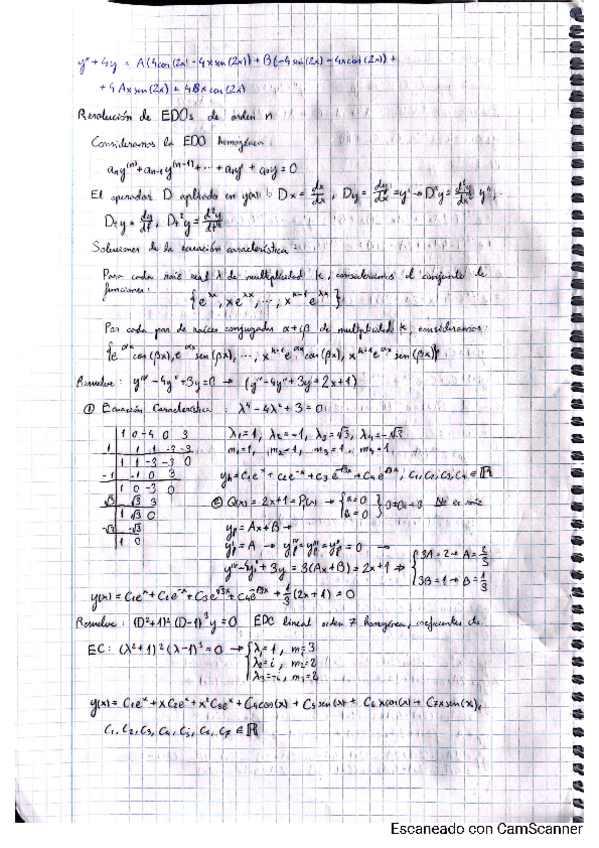 y'' + 4y = A(4cos(2x) - 4xsen(2x)) + B(-4sen(2x) - 4xcos(2x)) +
+ 4Axsen(2x) + 4Bxcos(2x)
Resolución de EDOs de orden n
Consideramos la EDO homogénea:
aₙy⁽ⁿ⁾ + aₙ₋₁y⁽ⁿ⁻¹⁾ + ... + a₁y' + a₀y = 0
El operador D aplicado en y(x): Dx = dx/dx, Dy = dy/dx = y' → D²y = d²y/dx² y'', ...
Dₜy = dy/dt, Dₜ²y = d²y/dt²
Soluciones de la ecuación característica:
Para cada raíz real λ de multiplicidad k, consideramos el conjunto de
funciones:
{e^λx, xe^λx, ..., x^k-1 e^λx}
Por cada par de raíces conjugadas α+iβ de multiplicidad k, consideramos:
{e^αx cos(βx), e^αx sen(βx), ..., x^k-1 e^αx cos(βx), x^k-1 e^αx sen(βx)}
Resuelve: yᴵⱽ - 4y'' + 3y = 0 → (yᴵⱽ - 4y'' + 3y = 2x+1)
① Ecuación Característica: λ⁴ - 4λ² + 3 = 0
1 0 -4 0 3
1 1 1 -3 -3
1 1 -3 -3 0
-1 -1 0 3
1 0 -3 0
√3 √3 3
1 √3 0
-√3 -√3
1 0
λ₁=1, λ₂=-1, λ₃=√3, λ₄=-√3
m₁=1, m₂=1, m₃=1, m₄=1
yₕ = C₁e^x + C₂e^-x + C₃e^√3x + C₄e^-√3x, C₁, C₂, C₃, C₄ ∈ ℝ
② Q(x) = 2x+1 = P₁(x) → {α=0 β=0} No es raíz
yₚ = Ax+B →
y'ₚ = A → yₚᴵⱽ = yₚ''' = yₚ'' = 0 →
yᴵⱽ - 4y'' + 3y = 3(Ax+B) = 2x+1 ⇒ {3A = 2 → A = 2/3
3B = 1 → B = 1/3
y(x) = C₁e^x + C₂e^-x + C₃e^√3x + C₄e^-√3x + 1/3(2x+1) = 0
Resuelve: (D²+1)²(D-1)³y = 0 EDO lineal orden 7 homogénea, coeficientes
EC: (λ²+1)²(λ-1)³ = 0 → {λ₁=1, m₁=3
λ₂=i, m₂=2
λ₃=-i, m₃=2
y(x) = C₁e^x + xC₂e^x + x²C₃e^x + C₄cos(x) + C₅sen(x) + C₆xcos(x) + C₇xsen(x),
C₁, C₂, C₃, C₄, C₅, C₆, C₇ ∈ ℝ
Escaneado con CamScanner